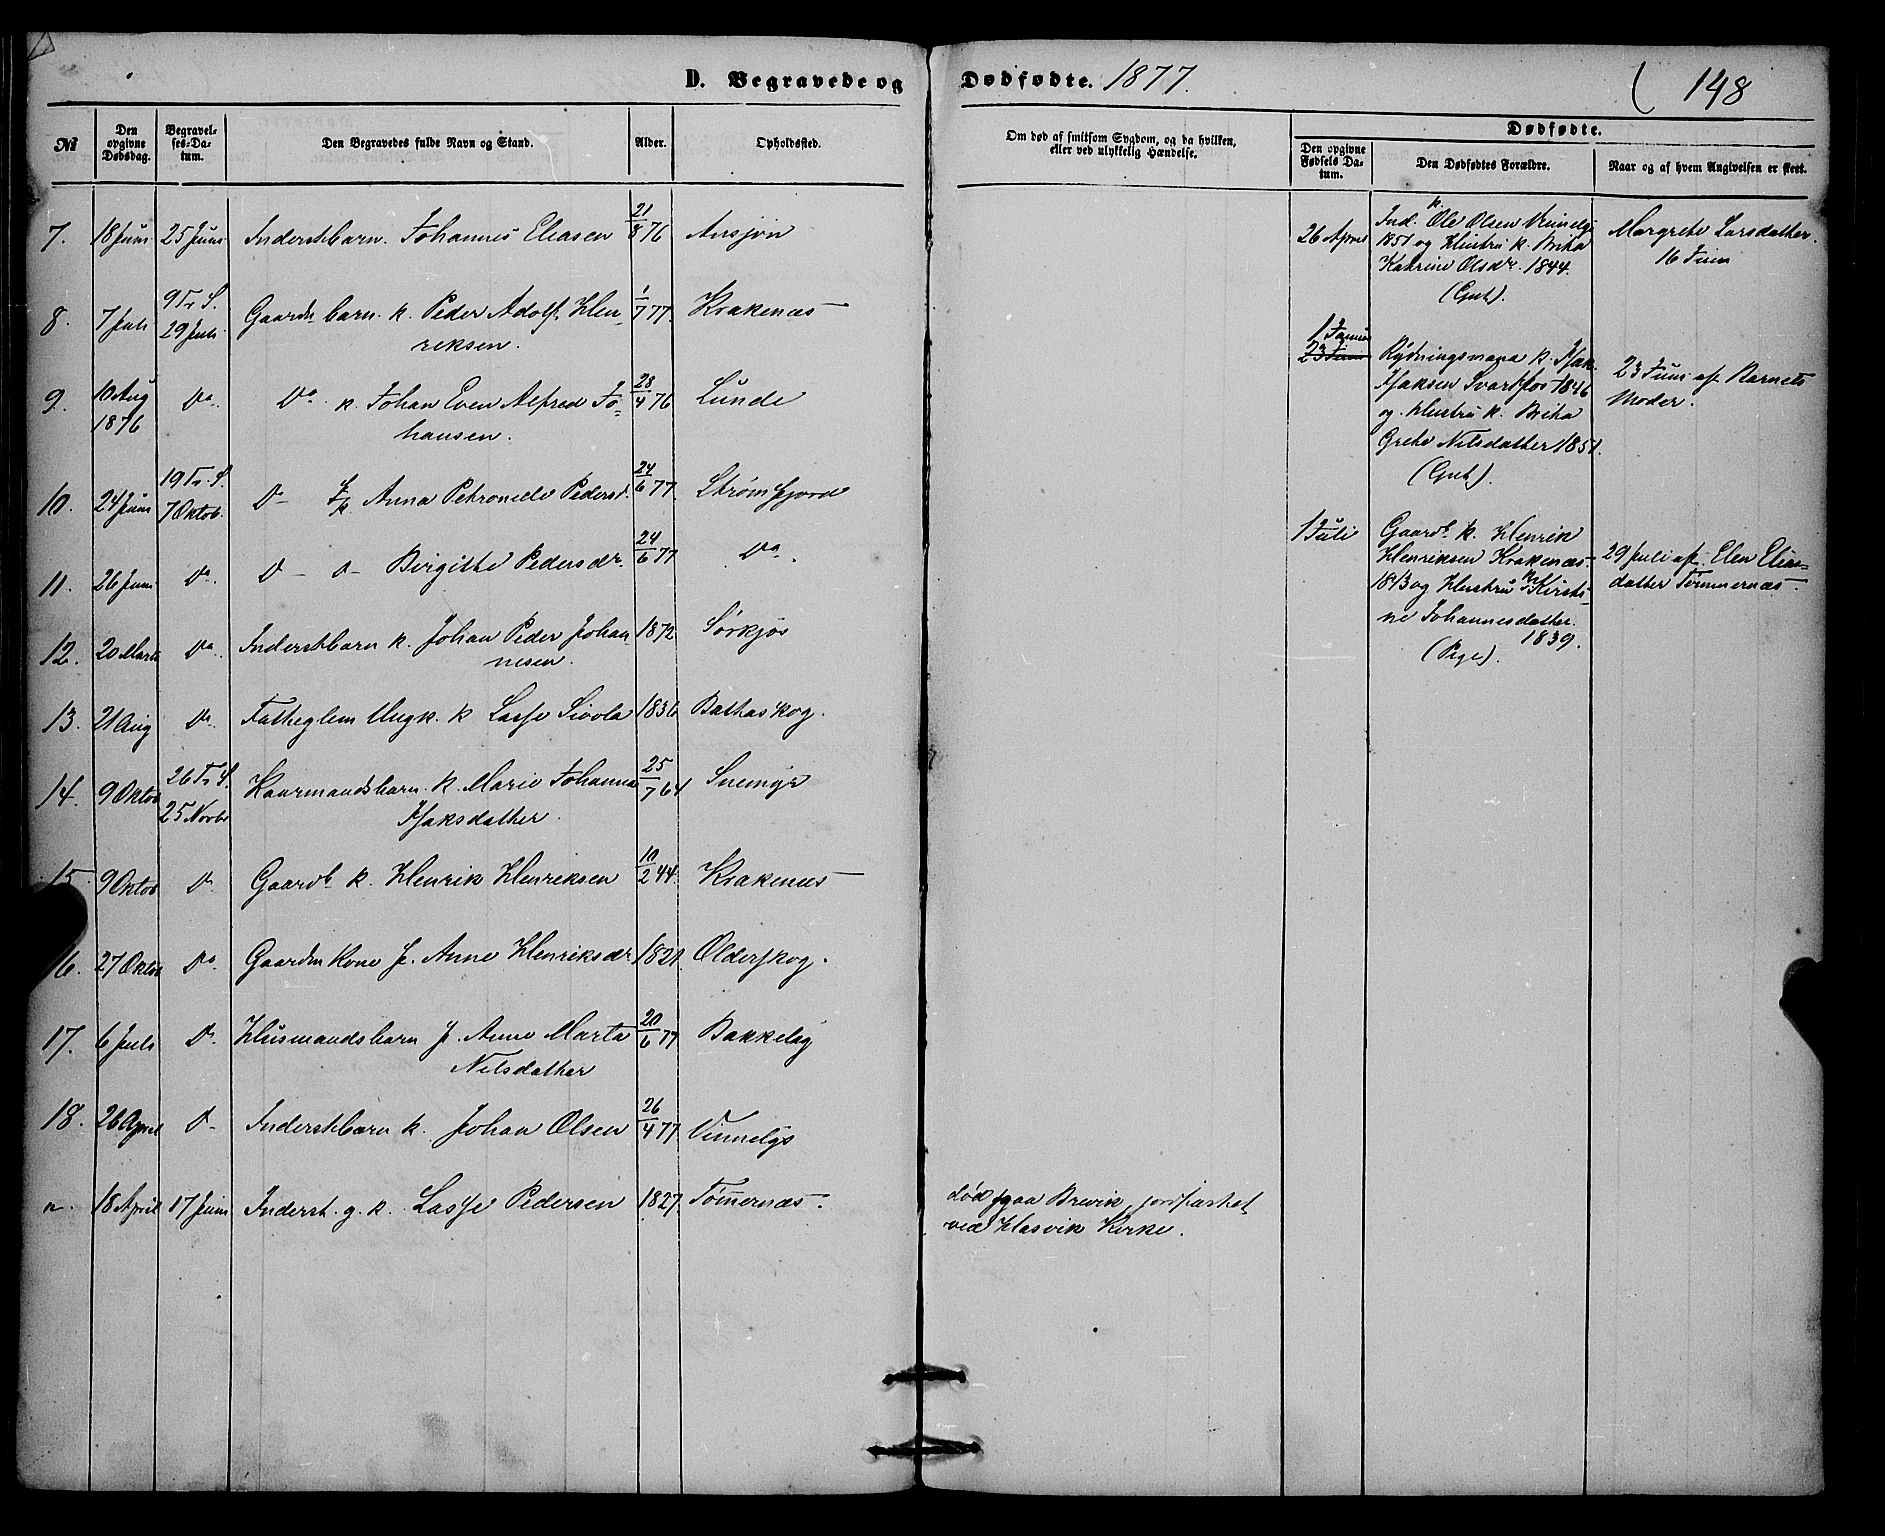 D. Begravede og Dødfødte. 1877. 148
№
Den opgivne Dødsdag.
Begravelses-Datum.
Den Begravedes fulde Navn og Stand.
Alder.
Opholdssted.
Om død af smitsom Sygdom, og da hvilken,
eller ved ulykkelig Hændelse.
Dødfødte.
Den opgivne Fødsels Datum.
Den Dødfødtes Forældre.
Naar og af hvem Angivelsen er skeet.
7. 18 Juni 25 Juni Inderstbarn. Johannes Eliasen 21/8 76
8. 7 Juli 9 Tr. S. 29 Juli Gaardm barn. k. Peder Adolf Hen-
riksen. 1/7 77. Krakenæs
9. 10 Aug 1876 Do. Do. k. Johan Even Alfred Jo-
hansen. 28/4 76 Lunde
10. 24 Juni 19 Tr. S. 7 Oktob. D- Anna Petronele Pedersd. 24/6 77. Strømfjord
11. 26 Juni Do. D- D- Birgitte Pedersdr. 24/6 77 Do.
12. 20 Marts Do. Inderstbarn k. Johan Peder Johan-
nesen. 1872 Sørkjos
13. 21 Aug Do. Fatteglem Ungk. k Lasse Sivola 1836 Baltaskog.
14. 9 Oktob 26 Tr. S. 25 Novbr k. Marie Johanna
Isaksdatter. 25/7 64 Snemyr
15. 9 Oktob Do. Gaardbr. k. Henrik Henriksen 10/2 44. Krakenæs
16. 27 Oktob Do. Gaardm Kone Anne Henriksdr. 1821. Olderskog.
17. 6 Juli Do. Husmandsbarn Anne Marta
Nilsdatter 20/6 77 Bakkeby
18. 26 April D- Inderstbarn k. Johan Olsen 26/4 77
n. 18 April 17 Juni Inderst. g. k. Lasse Pedersen 1827. Tømernæs.
død paa Brevik, jordfæstet
ved Hasvik Kirke.
26 April
Ind. k. Ole Olsen
1851 og Hustru k. Brita
Katrine Olsdr. 1844.
(Gut).
Margrete Larsdatter.
16 Juni
1 Januar
23 Juni
Rydningsmand k. Isak
Isaksen Svartfos 1846
og Hustru k. Brita
Grete Nilsdatter 1851.
(Gut).
23 Juni af Barnets
Moder.
1 Juli
Gaardb. k. Henrik
Henriksen Krakenæs
1843 og Hustru k. Kirsti-
ne Johannesdatter.
1839.
(Pige).
29 Juli af Elen Elias-
datter Tømmernæs.